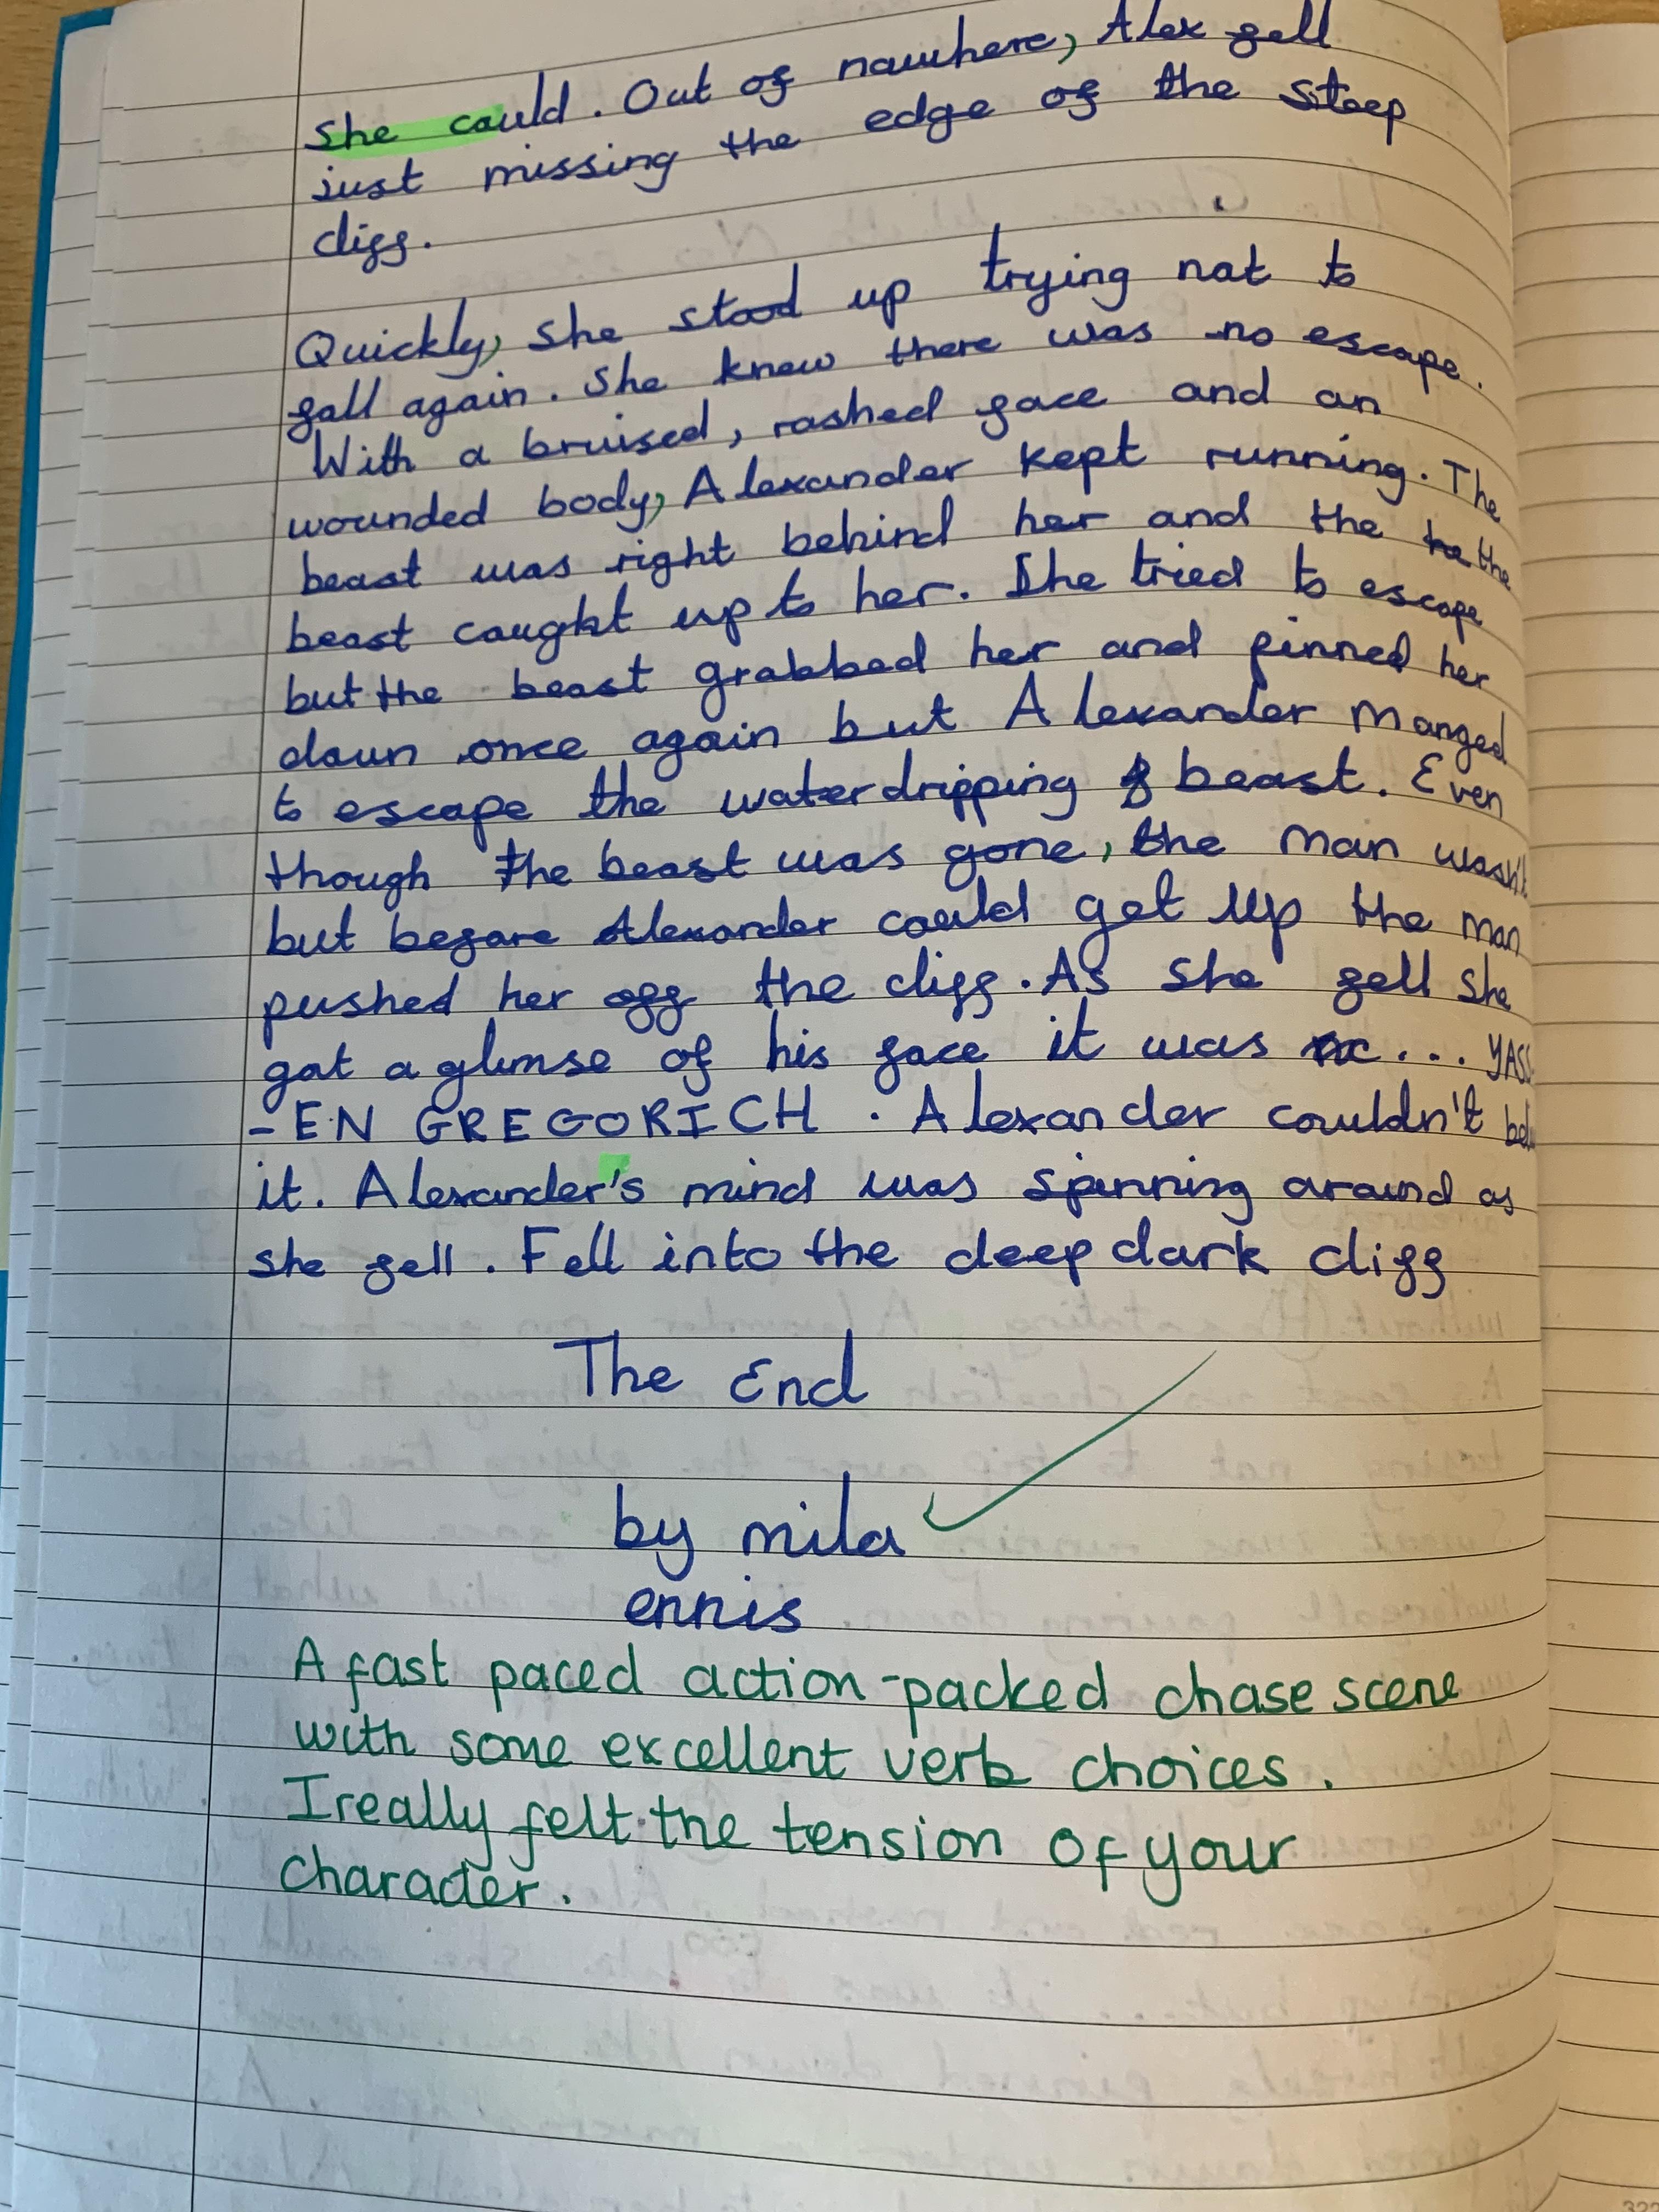 she could. Out of nowhere, Alex fell
just missing the edge of the steep
cliff.
Quickly, she stood up trying not to
fall again. She knew there was no escape.
With a bruised, rashed face and an
wounded body, Alexander kept running. The
beast was right behind her and the the
beast caught up to her. She tried to escape
but the beast grabbed her and pinned her
down once again but Alexander manged
to escape the water dripping beast. Even
though the beast was gone, the man wasn't
but before Alexander could get up the man
pushed her off the cliff. As she fell she
got a glimse of his face it was ... YASS
-EN GREGORICH. Alexander couldn't
it. Alexander's mind was spinning around as
she fell. Fell into the deep dark cliff
The End
by mila
ennis
A fast paced action-packed chase scene
with some excellent verb choices.
I really felt the tension of your
character.